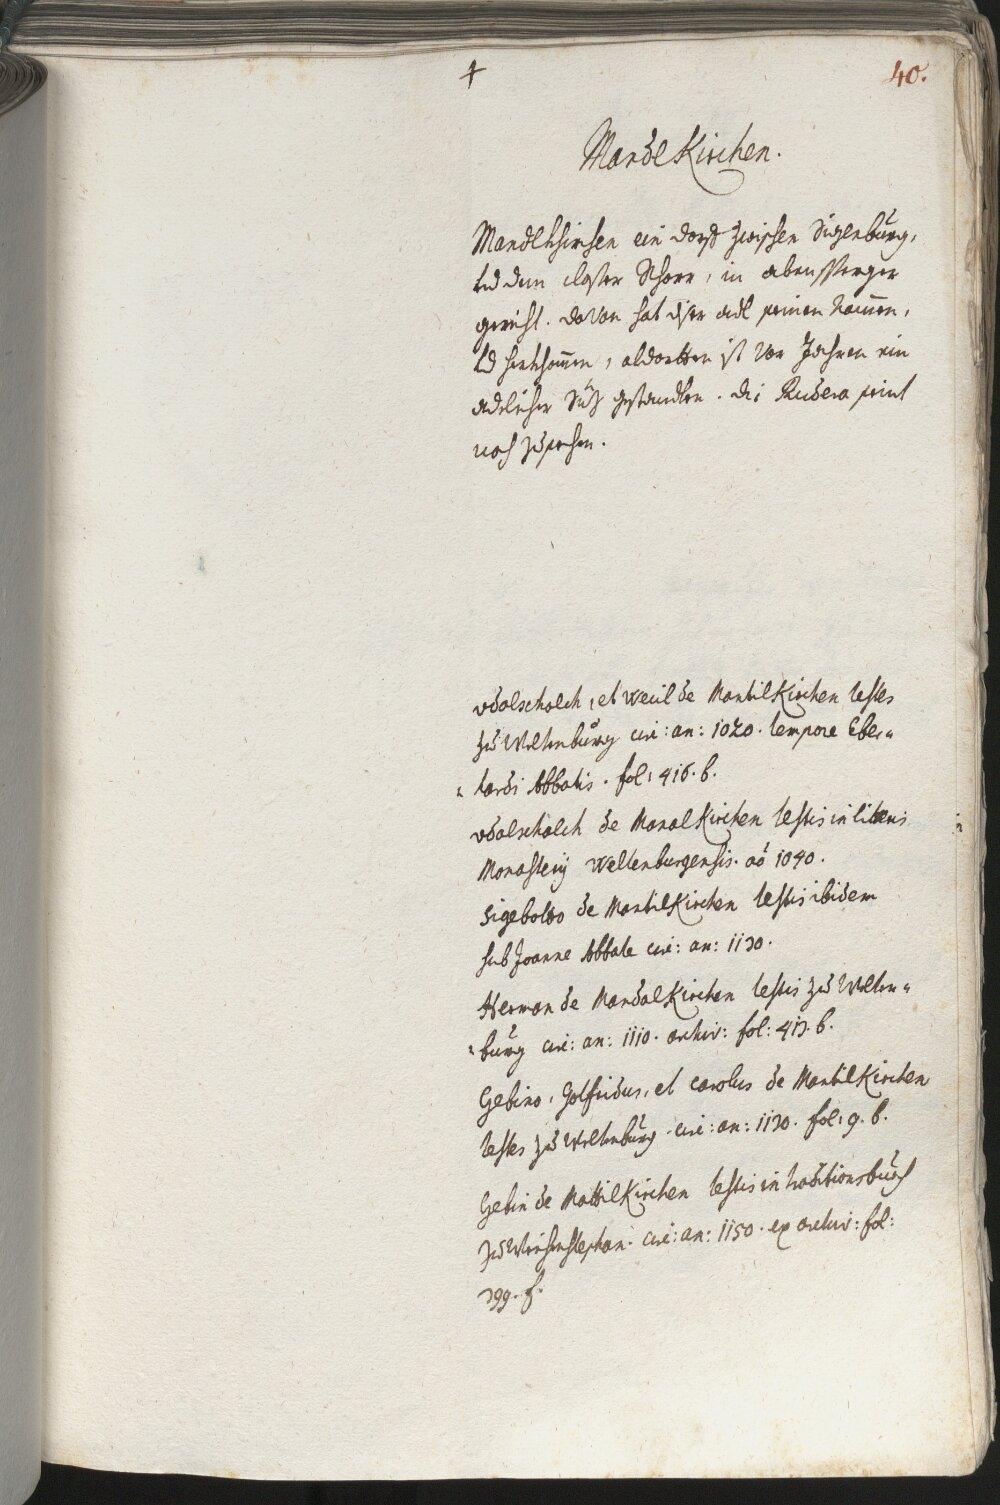 40.
MandlKirchen.
Mandlkhirchen ein dorff zwischen Sigenburg,
vnd dem closter Rhorr, in abensperger
gericht. davon hat diser adl seinen namen,
vnd herkhomen, aldortten ist vor Jahren ein
adelicher Siz gestandten. die Rudera seint
noch zusehen.
vdalschalch, et Weril de MantilKirchen testes
zu Weltenburg circ: an: 1020. tempore Eber„
„hardi Abbatis. fol: 416. b.
vdalschalch de MandlKirchen testis in literis
Monasterij Weltenburgensis. aō 1040.
Sigeboldo de MantilKirchen testis ibidem
sub Joanne Abbate circ: an: 1130.
Herman de MandalKirchen testis zu Welten„
„burg circ: an: 1110. archiv: fol: 413. b.
Gebino, Gotfridus, et carolus de MantilKirchen
testes zu Weltenburg. circ: an: 1130. fol: 9. b.
Gebin de MattilKirchen testis in traditionsbuch
zu Weichenstephan. circ: an: 1150. ex archiv: fol:
399. f.